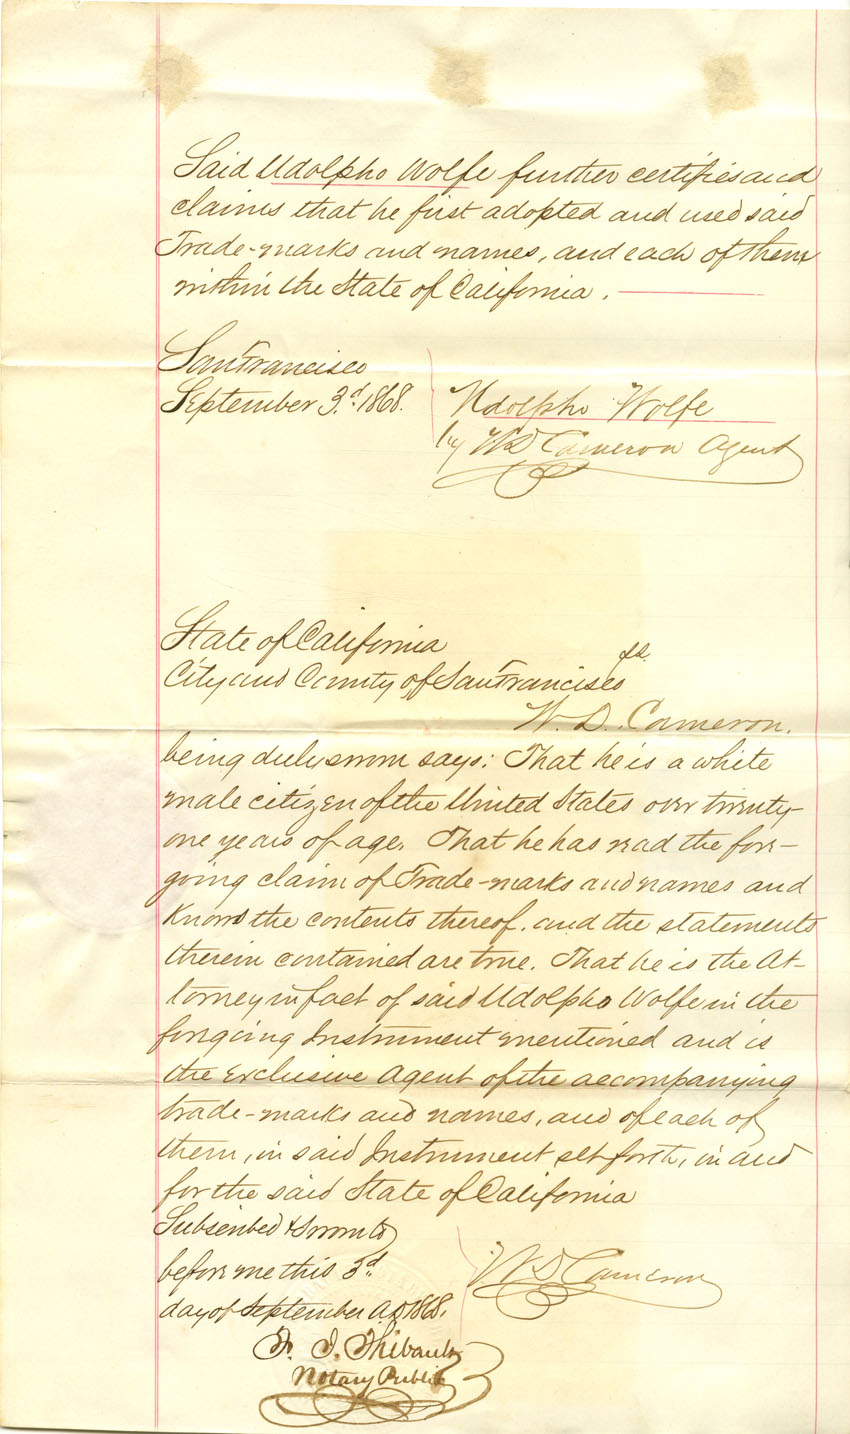 Said Udolpho Wolfe further certifies and
claims that he first adopted and used said
Trade-marks and names, and each of them
within the State of California.
San Francisco
September 3d. 1868.
Udolpho Wolfe
by W D Cameron Agent
State of California
City and County of San Francisco ss.
W. D. Cameron.
being duly sworn says: That he is a white
male citizen of the United States over twenty-
one years of age. That he has read the fore-
going claim of Trade-marks and names and
Knows the contents thereof, and the statements
therein contained are true. That he is the At-
torney in fact of said Udolpho Wolfe in the
foregoing Instrument mentioned and is
the exclusive Agent of the accompanying
trade-marks and names, and of each of
them, in said Instrument set forth, in and
for the said State of California
Subscribed & Sworn to
before me this 3d
day of September A.D 1868.
W D Cameron
F. J. Thibault
Notary Public